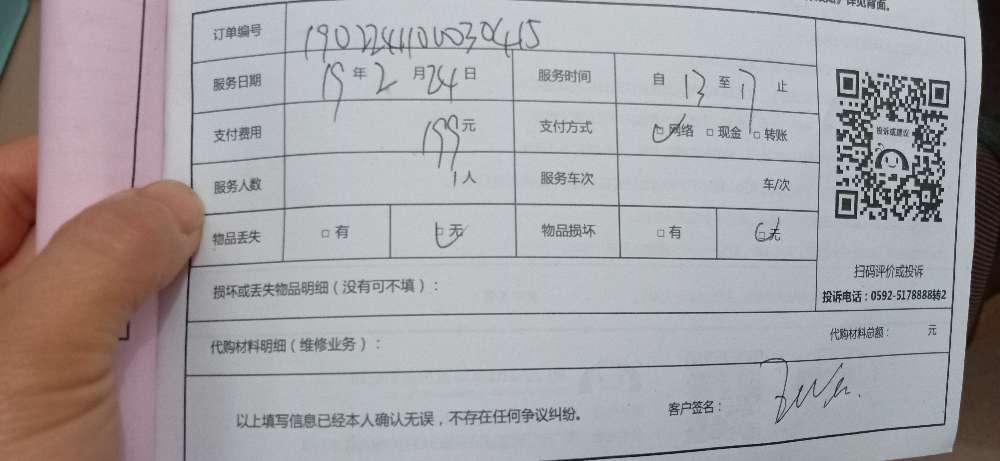 详见背面。
订单编号 190224110030415
服务日期 19年2月24日 服务时间 自13至17止
支付费用 199元 支付方式 □网络 □现金 □转账
服务人数 1人 服务车次 车/次
物品丢失 □有 □无 物品损坏 □有 □无
投诉或建议
扫码评价或投诉
投诉电话：0592-5178888转2
损坏或丢失物品明细（没有可不填）：
代购材料明细（维修业务）： 代购材料总额： 元
以上填写信息已经本人确认无误，不存在任何争议纠纷。 客户签名：